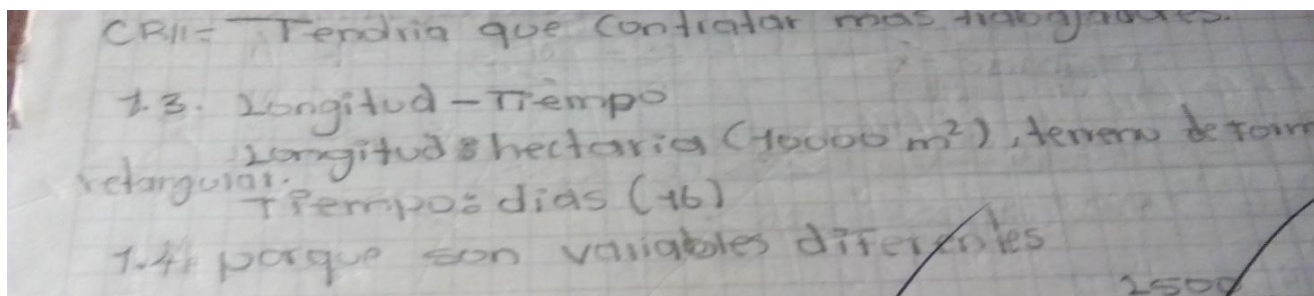 CR11= Tendria que contratar mas trabajadores.
1.3. Longitud - Tiempo
Longitud: hectaria (10000 m²), terreno de form
retangular.
Tiempo: dias (16)
1.4. porque son variables diferentes
2500